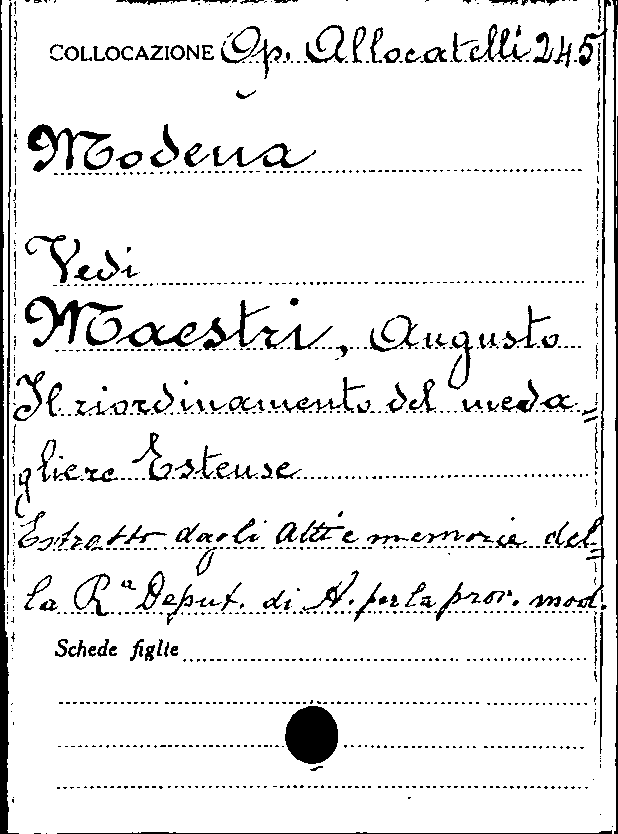 COLLOCAZIONE Op. Allocatelli 245
Modena
Vedi
Maestri, Augusto
Il riordinamento del meda=
gliere Estense
Estratto dagli Atti e memorie del=
la Rª Deput. di A. per la prov. mod.
Schede figlie